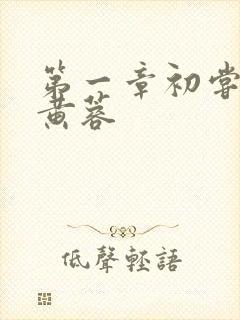 第一章初嘗
黄蓉
低聲輕語